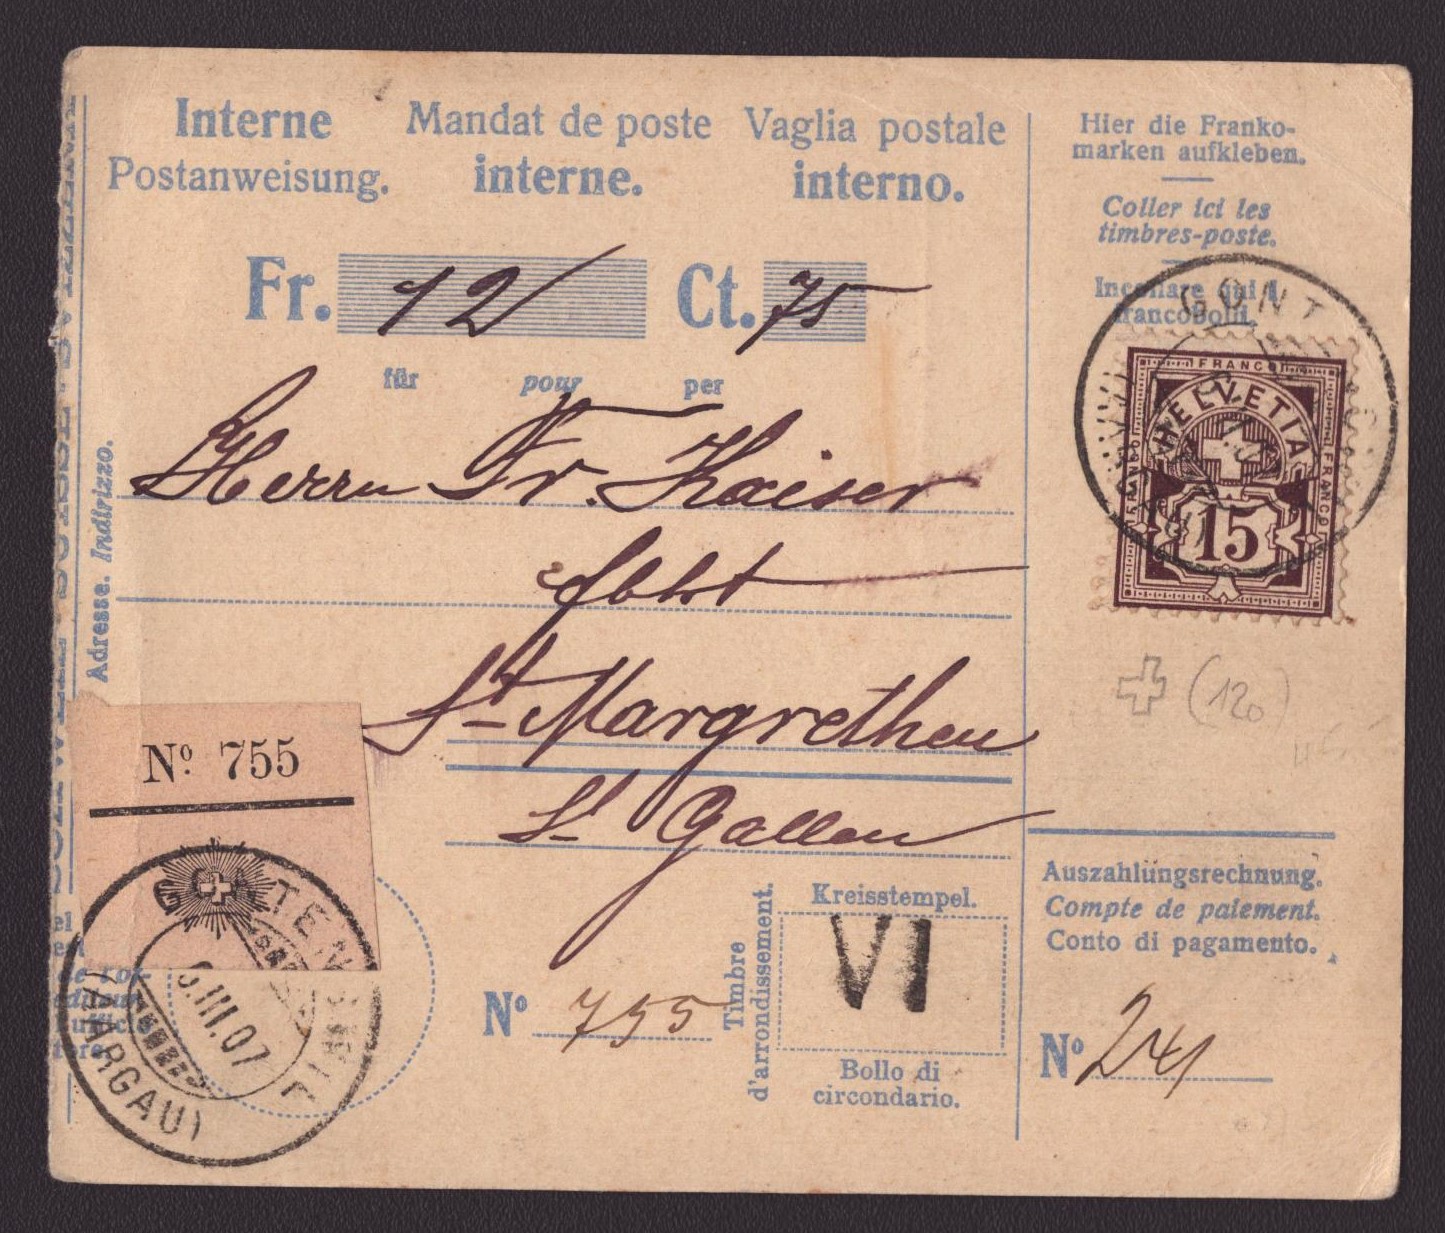 Interne
Postanweisung.
Mandat de poste
interne.
Vaglia postale
interno.
Hier die Franko-
marken aufkleben.
Coller ici les
timbres-poste.
Incollare qui i
francobolli.
Fr. 12 Ct. 75
für pour per
Herrn Fr. Kaiser
St. Margrethen
St Gallen
Adresse. Indirizzo.
FRANCO
HELVETIA
FRANCO
15
GONT
(120)
Nº 755
GONTENSCHWIL
6.III.07
(AARGAU)
Nº 755
Timbre
d'arrondissement.
Kreisstempel.
VI
Bollo di
circondario.
Auszahlungsrechnung.
Compte de paiement.
Conto di pagamento.
Nº 241